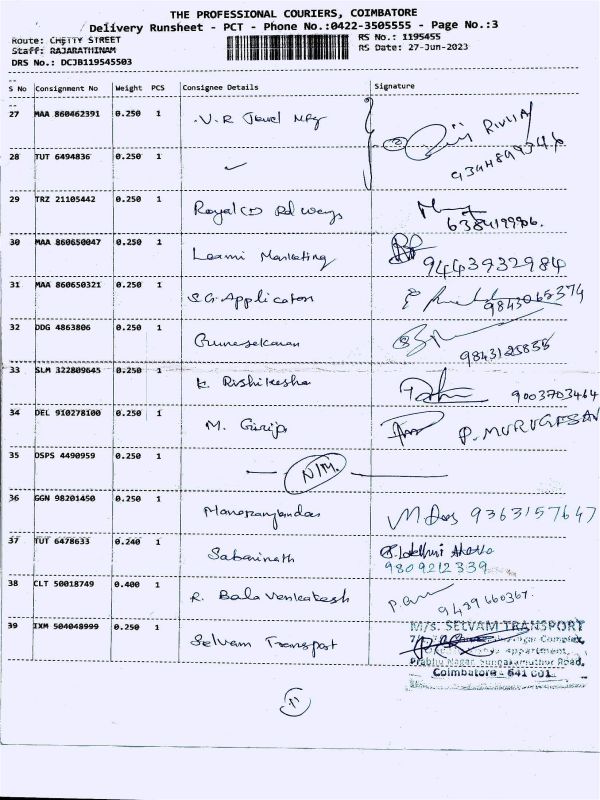 THE PROFESSIONAL COURIERS, COIMBATORE
Delivery Runsheet - PCT - Phone No.:0422-3505555 - Page No.:3
Route: CHETTY STREET RS No.: 1195455
Staff: RAJARATHINAM RS Date: 27-Jun-2023
DRS No.: DCJB119545503
S No Consignment No Weight PCS Consignee Details Signature
27 MAA 860462391 0.250 1 V.R Jewel Mfg
28 TUT 6494836 0.250 1
29 TRZ 21105442 0.250 1 Royal
30 MAA 860650047 0.250 1 Laxmi Marketing 9443932984
31 MAA 860650321 0.250 1 S.G. Application 9843065374
32 DDG 4863806 0.250 1 Gunasekaran
33 SLM 322809645 0.250 1 K. Rishikesha 9003703464
34 DEL 910278100 0.250 1 M. Girija P. MURUGESAN
35 DSPS 4490959 0.250 1 N/M.
36 GGN 98201450 0.250 1 Manoranjandas M Das 9363157647
37 TUT 6478633 0.240 1 Sabarinath
9809212339
38 CLT 50018749 0.400 1 R. Bala Venkatesh
39 IXM 504048999 0.250 1 Selvam Transport M/s. SELVAM TRANSPORT
Complex,
Appartment,
Prabhu Nagar, Sungam Road,
Coimbatore - 641 001.
11